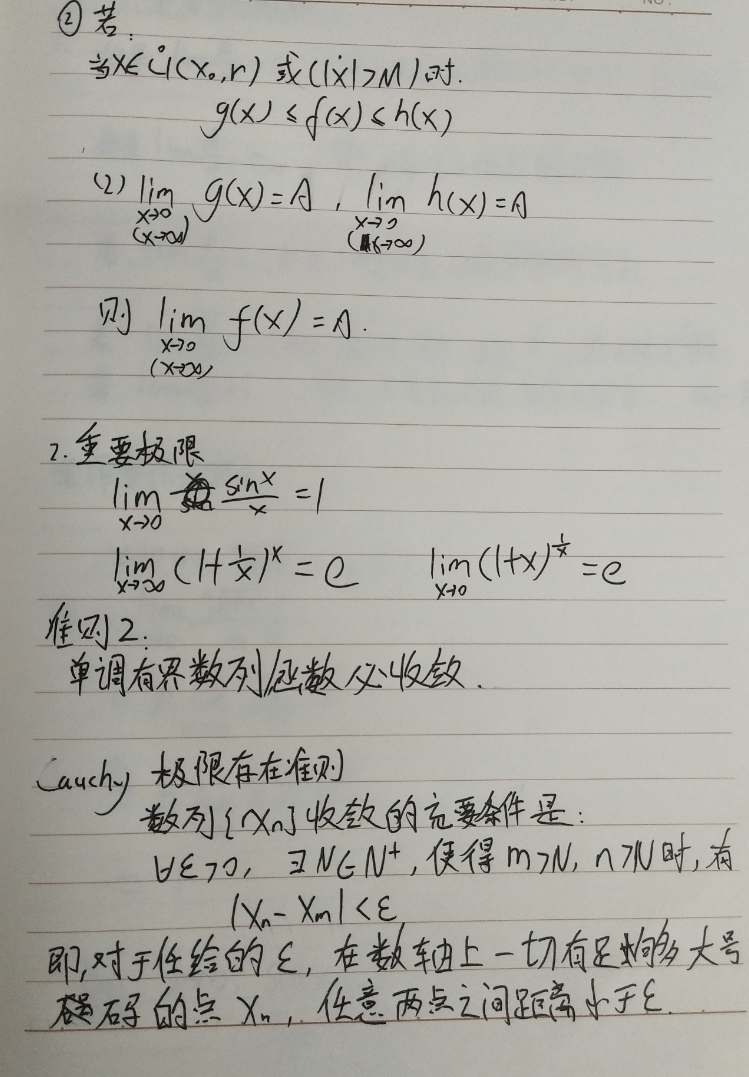 ② 若:
当x∈Ů(x₀,r) 或(|x|>M)时.
g(x)≤f(x)≤h(x)
(2) lim g(x)=A, lim h(x)=A
x→0 x→0
(x→∞) (x→∞)
则 lim f(x)=A.
x→0
(x→∞)
2.重要极限
lim sinx/x =1
x→0
lim (1+1/x)^x = e lim (1+x)^(1/x) = e
x→∞ x→0
准则2.
单调有界数列/函数必收敛.
Cauchy 极限存在准则
数列{xn}收敛的充要条件是:
∀ε>0, ∃N∈N⁺, 使得m>N, n>N时,有
|xn-xm|<ε
即,对于任给的ε, 在数轴上一切有足够多大号
码的点xn, 任意两点之间距离小于ε.